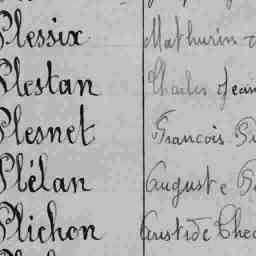 Plessix Mathurin
Plestan Charles Jean
Plesnet Francois
Plélan Auguste
Plichon Aristide